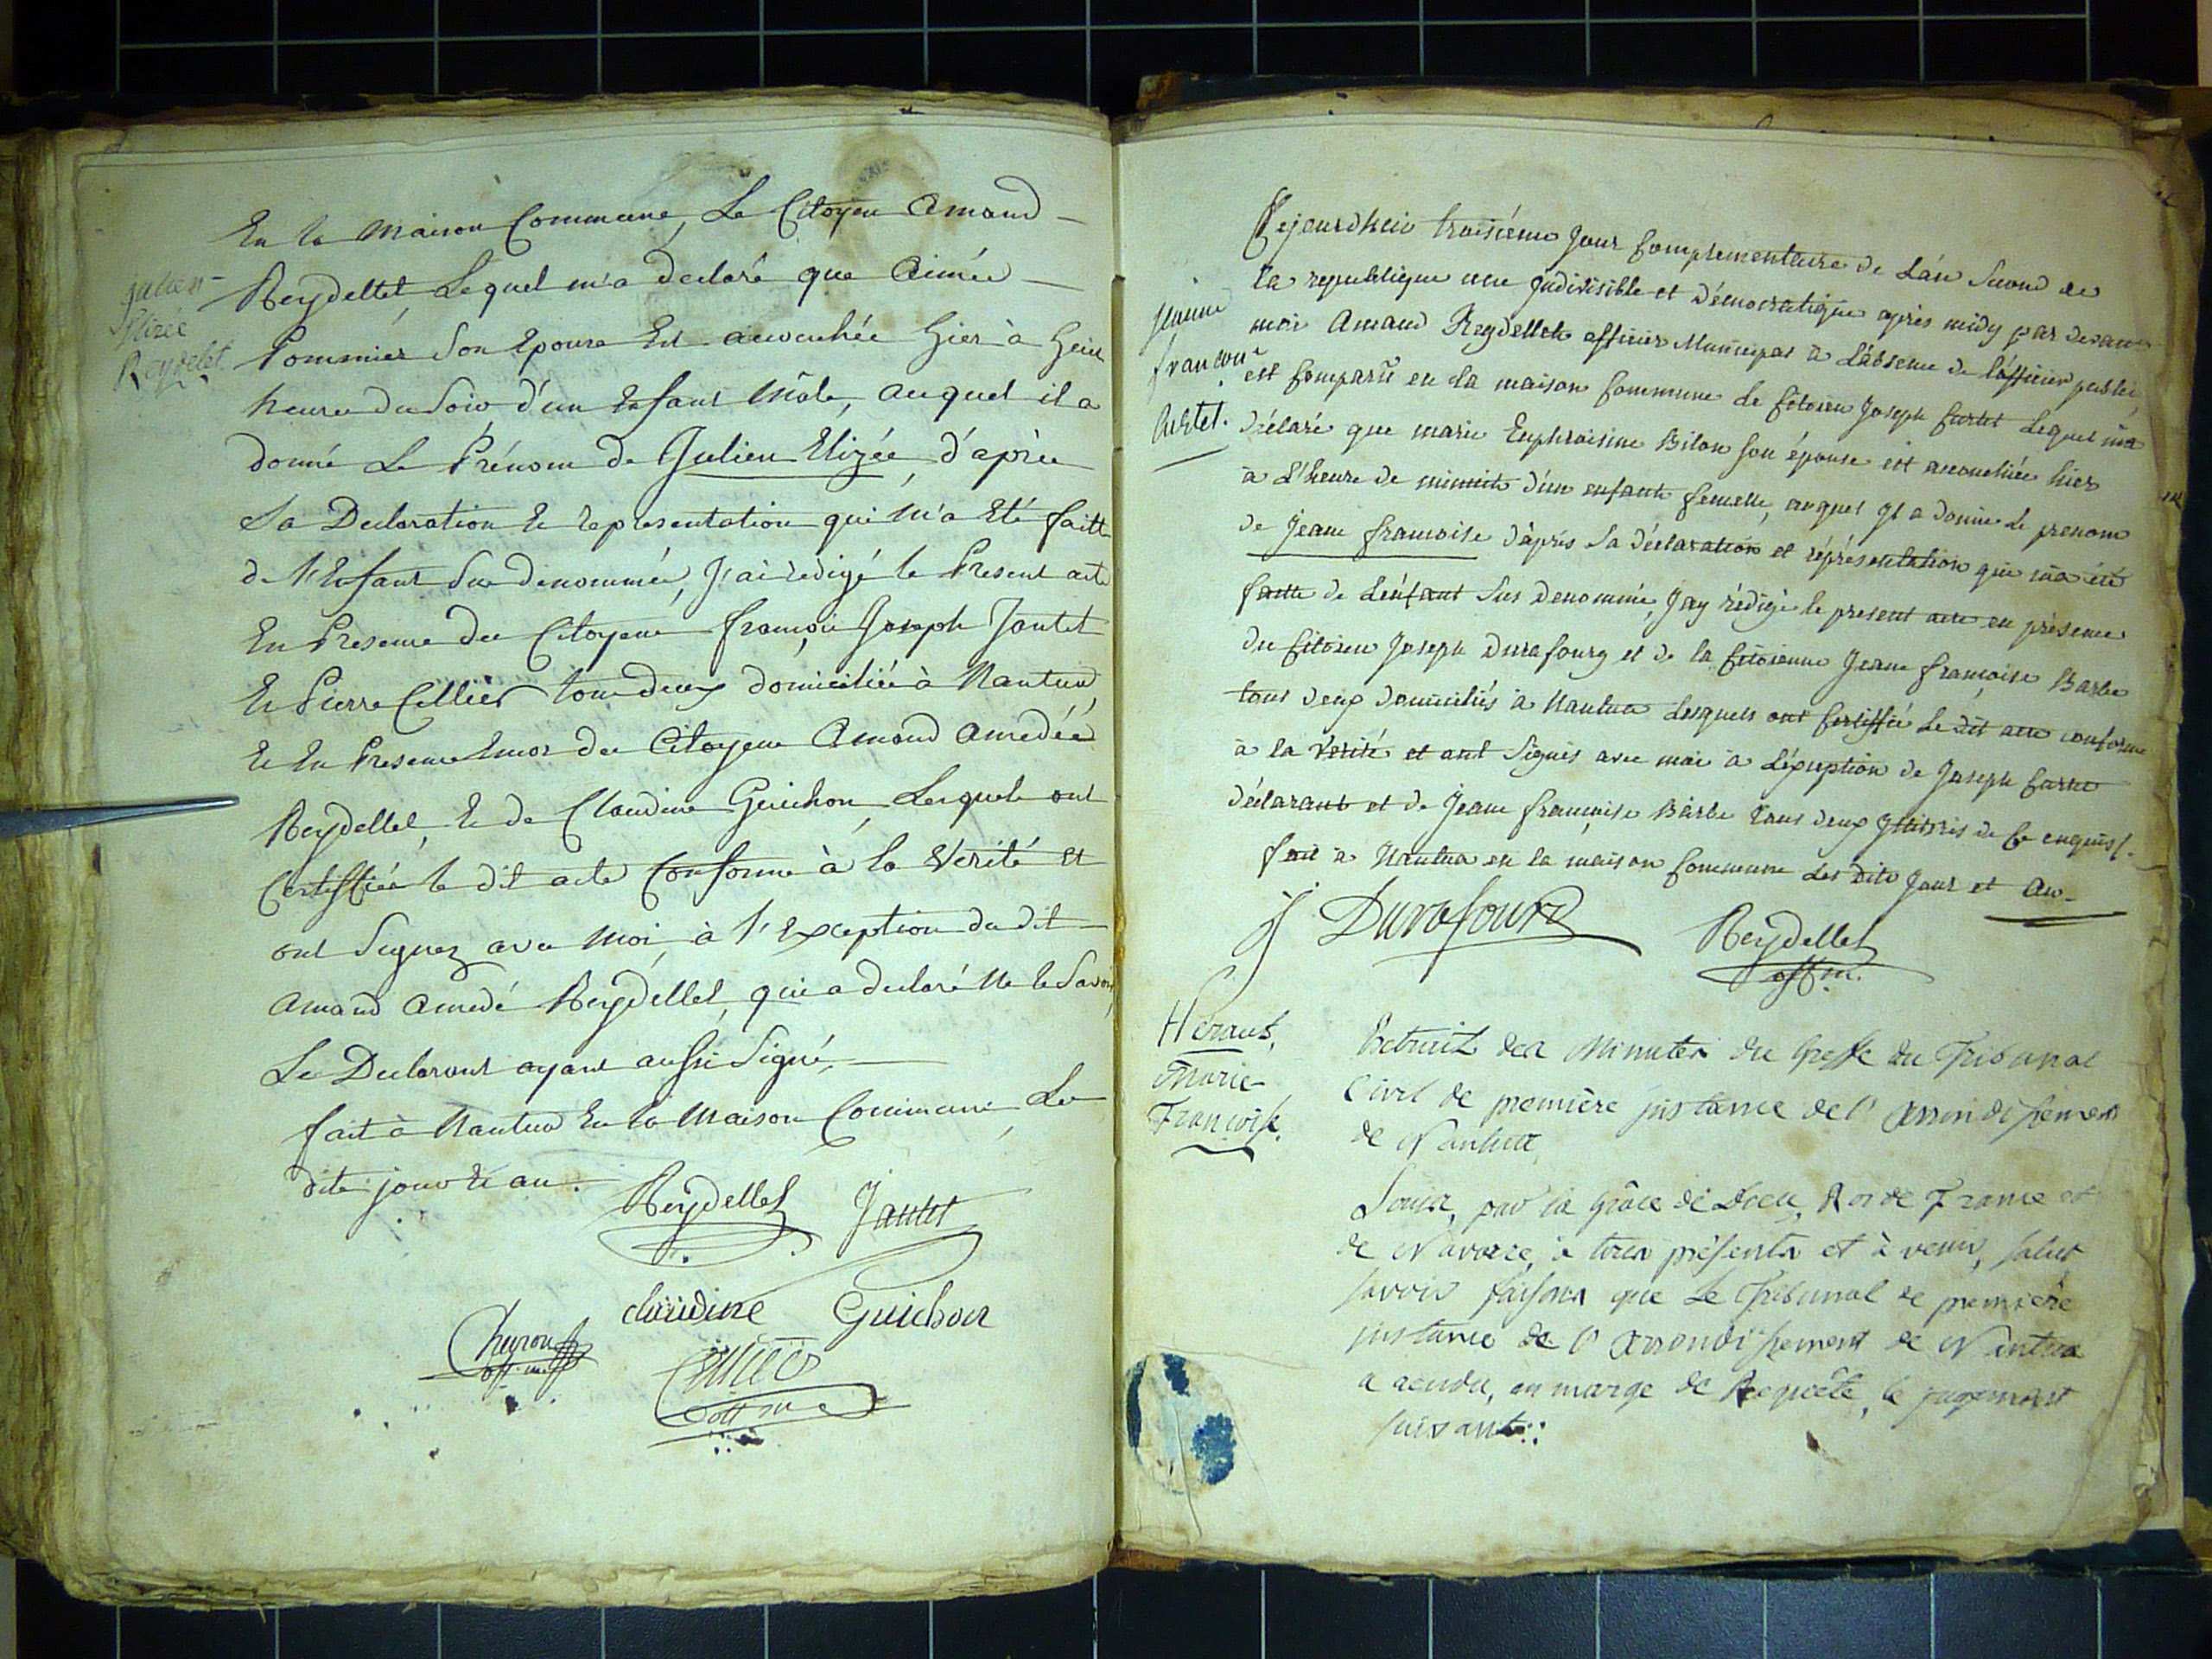 Julien
Elizée
Reydelet
En la Maison Commune, Le Citoyen Amand
Reydellet, Lequel m'a declaré que Aimée
Pommier Son Epouse Est accouchée hier à huit
heures du Soir d'un Enfant Mâle, auquel il a
donné Le Prénom de Julien Elizée, d'après
Sa Declaration & representation qui m'a Eté faitte
de l'Enfant Sus denommé, J'ai redigé le Present acte
En Presence des Citoyens françois Joseph Jantet
Et Pierre Cellier tous deux domiciliés à Nantua,
Et En Presence Encor des Citoyens Amand Amedée
Reydellet, & de Claudine Guichon, Lesquels ont
Certiffiés le dit acte Conforme à la Verité Et
ont Signez avec Moi, à l'Exception du dit
Amand Amedé Reydellet, qui a declaré Ne le Savoir,
Le Declarant ayant aussi Signé,
fait à Nantua En la Maison Commune, Les
dits jour & an.
Reydellet Jantet
claudine Guichon
off. m.
Jeanne
francoise
Curtet.
Cejourdhuis troisiéme Jour Complementaire de L'an Second de
la republique une Jndivisible et Démocratique après midy par devant
moi Amand Reydellet officier Municipal à L'absence de L'officier public,
est Comparû en la maison Commune Le Citoien Joseph Curtet Lequel m'a
Déclaré que marie Euphroisine Bilon Son épouse est accouchée hier
à L'heure de minuit d'un enfant femelle, auquel Jl a donné Le prenom
de Jeane francoise d'aprés Sa déclaration et représentation qui m'a été
faitte de L'enfant Sus Denommé, J'ay rédigé le present acte en présence
du Citoien Joseph Durafourg et de la Citoienne Jeane françoise Barbe
tous deux Domiciliés à Nantua Lesquels ont Certiffié Le dit acte conforme
à la Verité et ont Signés avec moi à L'éxception de Joseph Curtet
déclarant et de Jeane françoise Barbe tous deux Jllitrés de Ce enquis /.
fait à Nantua en la maison Commune Les dits Jour et An.
J Durafourg
Reydellet
off. m.
Héraut,
Marie
Françoise.
Extrait des Minutes du Greffe du Tribunal
Civil de première jnstance de l'Arrondissement
de Nantua
Louis, par la grâce de Dieu, Roi de France et
de Navarre, à tous présents et à venir, salut
savoir faisons que Le Tribunal de première
jnstance de l'Arrondissement de Nantua
a rendu, en marge de Requête, le jugement
suivant: